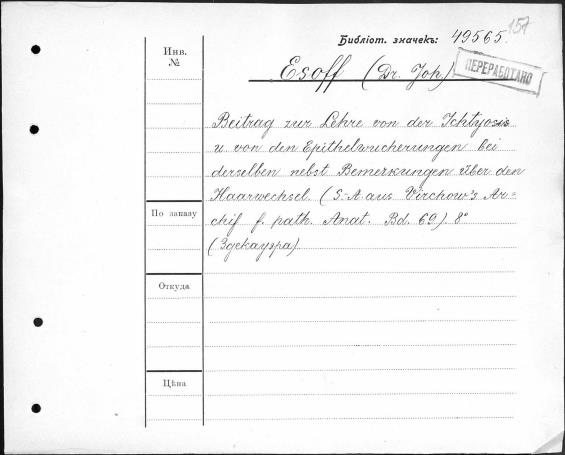 157
Библіот. значекъ: 49565.
Инв.
№
ПЕРЕРАБОТАНО
Esoff (Dr. Joh.)
Beitrag zur Lehre von der Ichtyosis
u. von den Epithelwucherungen bei
derselben nebst Bemerkungen über den
Haarwechsel. (S.-A. aus Virchow's Ar-
chif f. path. Anat. Bd. 69) 8°
(Здекауэра)
По заказу
Откуда
Цѣна